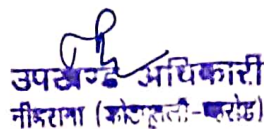 उपखण्ड अधिकारी
नीमराना (कोटपूतली-बहरोड)